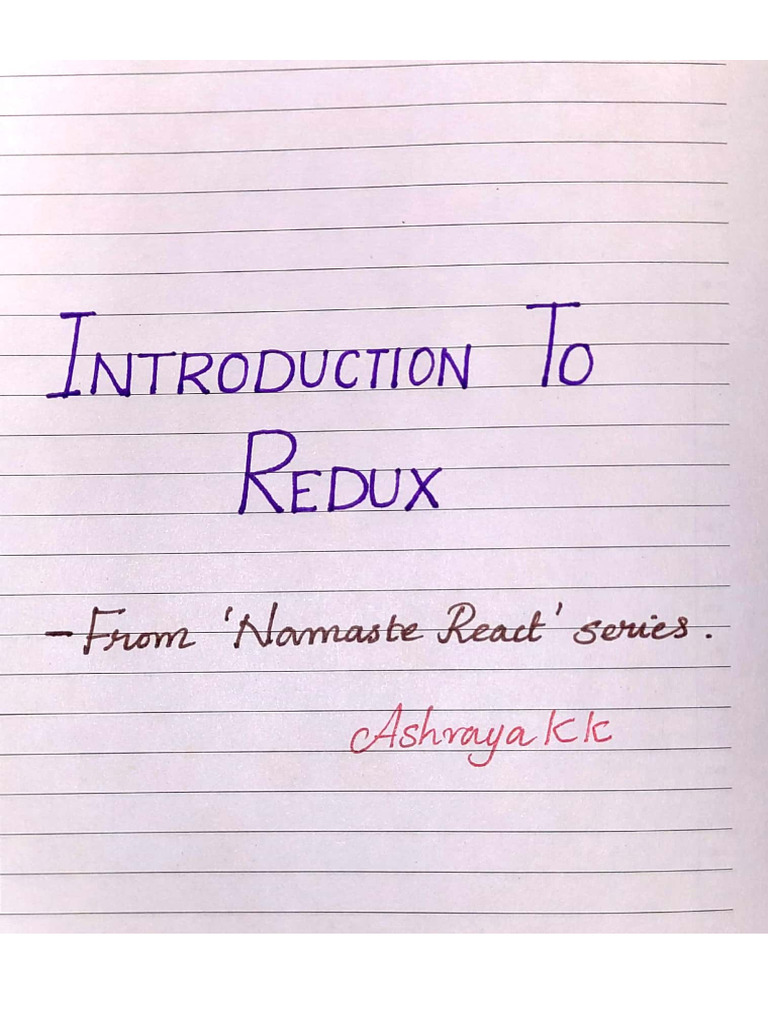 INTRODUCTION TO
REDUX
- From 'Namaste React' series.
Ashraya KK